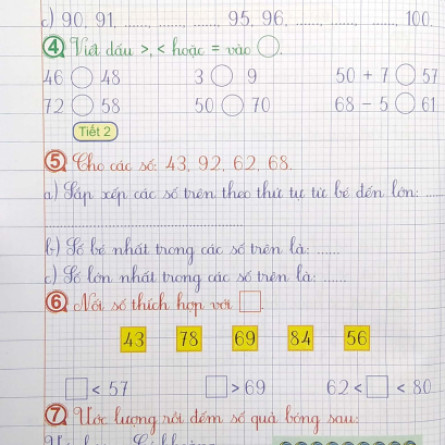 c) 90, 91, ........, ........, ........, 95, 96, ........, ........, ........, 100.
④ Viết dấu >, < hoặc = vào ◯.
46 ◯ 48 3 ◯ 9 50 + 7 ◯ 57
72 ◯ 58 50 ◯ 70 68 - 5 ◯ 61
Tiết 2
⑤ Cho các số: 43, 92, 62, 68.
a) Sắp xếp các số trên theo thứ tự từ bé đến lớn: ....
b) Số bé nhất trong các số trên là: ......
c) Số lớn nhất trong các số trên là: ......
⑥ Nối số thích hợp với □.
43 78 69 84 56
□ < 57 □ > 69 62 < □ < 80
⑦ Ước lượng rồi đếm số quả bóng sau: